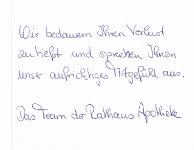 Wir bedauern Ihren Verlust
zutiefst und sprechen Ihnen
unser aufrichtiges Mitgefühl aus.
Das Team der Rathaus Apotheke